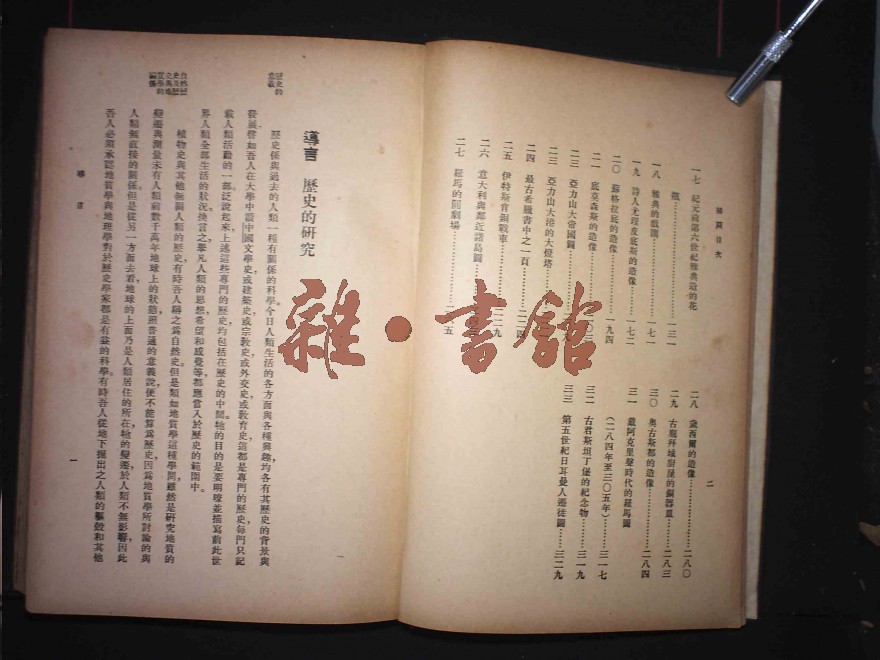 插圖目次
二
一七　紀元前第六世紀雅典造的花
瓶……一三一
一八　雅典的戲園……一七一
一九　詩人尤理皮底斯的造像……一七二
二〇　蘇格拉底的造像……一九四
二一　底莫森斯的造像……二〇三
二二　亞力山大帝國圖
二三　亞力山大港的大燈塔
二四　最古希臘書中之一頁……二二四
二五　伊特斯肯銅戰車……二二九
二六　意大利與鄰近諸島圖
二七　羅馬的圓劇場……二七五
二八　該撒爾的造像……二八〇
二九　古龐拜城廚屋的銅器皿……二八三
三〇　奧古斯都的造像……二八四
三一　戴阿克里聲時代的羅馬圖
（二八四年至三〇五年）……三一七
三二　古君斯坦丁堡的紀念物……三一九
三三　第五世紀日耳曼人遷徒圖……三二九
雜·書館
導言　歷史的研究
歷史的
意義
歷史係與過去的人類一種有關係的科學今日人類生活的各方面與各種興趣均各有其歷史的背景與
發展譬如吾人在大學中讀中國文學史或建築史或宗教史或外交史或教育史這都是專門的歷史每門只記
載人類活動的一部泛說起來上述這些專門的歷史均包括在歷史的中間牠的目的是要明瞭並描寫前此世
界人類全部生活的狀況換言之舉凡人類的思想希望和感覺等都應當入於歷史的範圍中。
自然歷
史及歷
史與地
質學的
關係
植物史與其他無關人類的歷史有時吾人稱之為自然史但是類如地質學這種學問雖然是研究地質的
變遷與測量未有人類前數千萬年地球上的狀態照普通的意義說便不能算為歷史因為地質學所討論的與
人類無直接的關係但是從另一方面去看地球的上面乃是人類居住的所在牠的變遷於人類不無影響因此
吾人必須承認地質學與地理學對於歷史學家都是有益的科學有時吾人從地下掘出之人類的軀殼和其他
導言
一